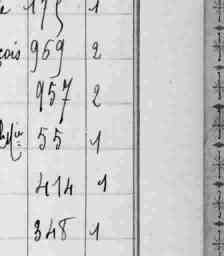 175 1
çois 959 2
957 2
55 1
414 1
348 1